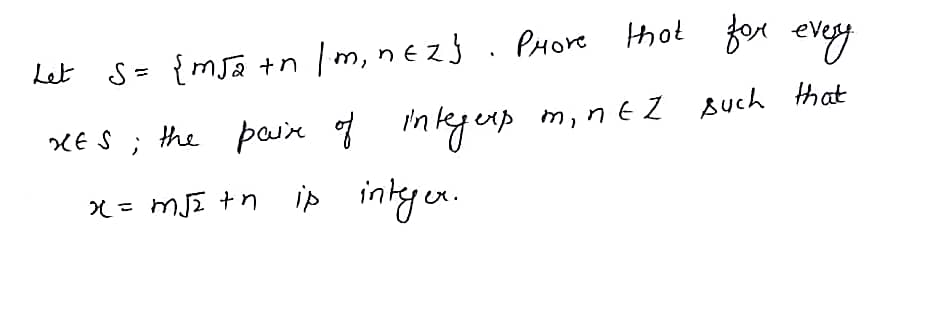 Let S = {m√2 +n | m, n ∈ Z} . Prove that for every
x ∈ S ; the pair of integers m, n ∈ Z such that
x = m√2 + n is integer.